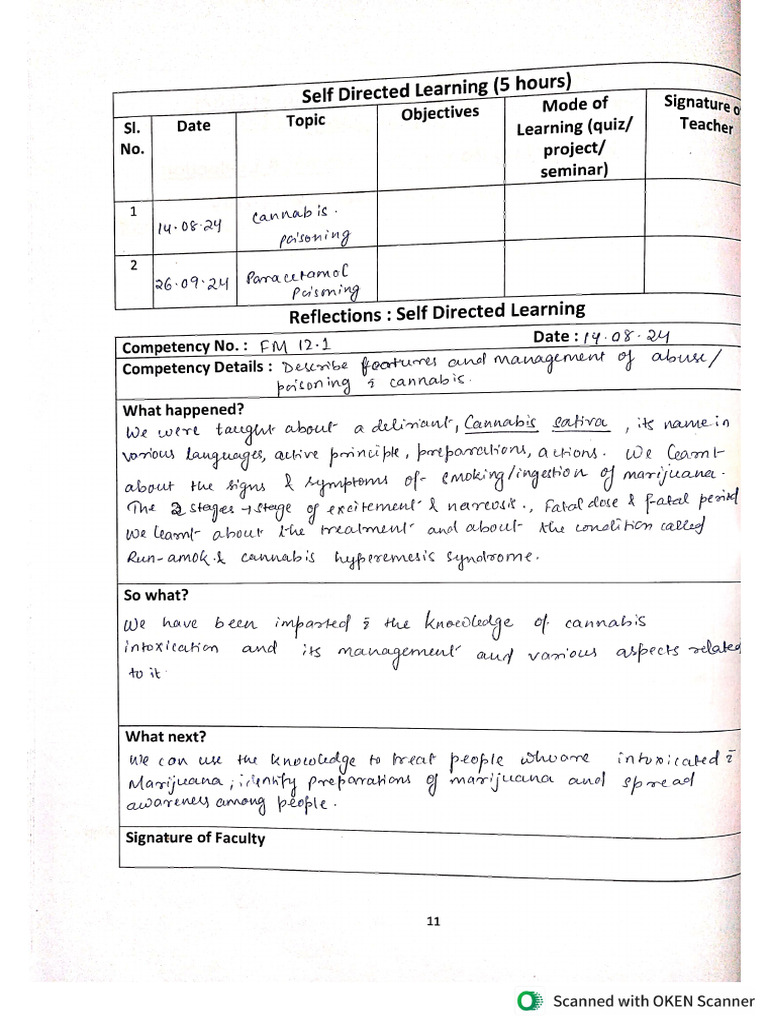 Self Directed Learning (5 hours)
Sl. No. Date Topic Objectives Mode of Learning (quiz/ project/ seminar) Signature o Teacher
1 14.08.24 Cannabis. poisoning
2 26.09.24 Paracetamol Poisoning
Reflections : Self Directed Learning
Competency No. : FM 12.1 Date : 14.08.24
Competency Details : Describe features and management of abuse/
poisoning c̄ cannabis.
What happened?
We were taught about a deliriant, Cannabis sativa, its name in
various languages, active principle, preparations, actions. We learnt
about the signs & symptoms of smoking/ingestion of marijuana.
The 2 stages → stage of excitement & narcosis., Fatal dose & fatal period
We learnt about the treatment and about the condition called
Run-amok & cannabis hyperemesis syndrome.
So what?
We have been imparted c̄ the knowledge of cannabis
intoxication and its management and various aspects related
to it
What next?
We can use the knowledge to treat people who are intoxicated c̄
Marijuana, identify preparations of marijuana and spread
awareness among people.
Signature of Faculty
11
Scanned with OKEN Scanner